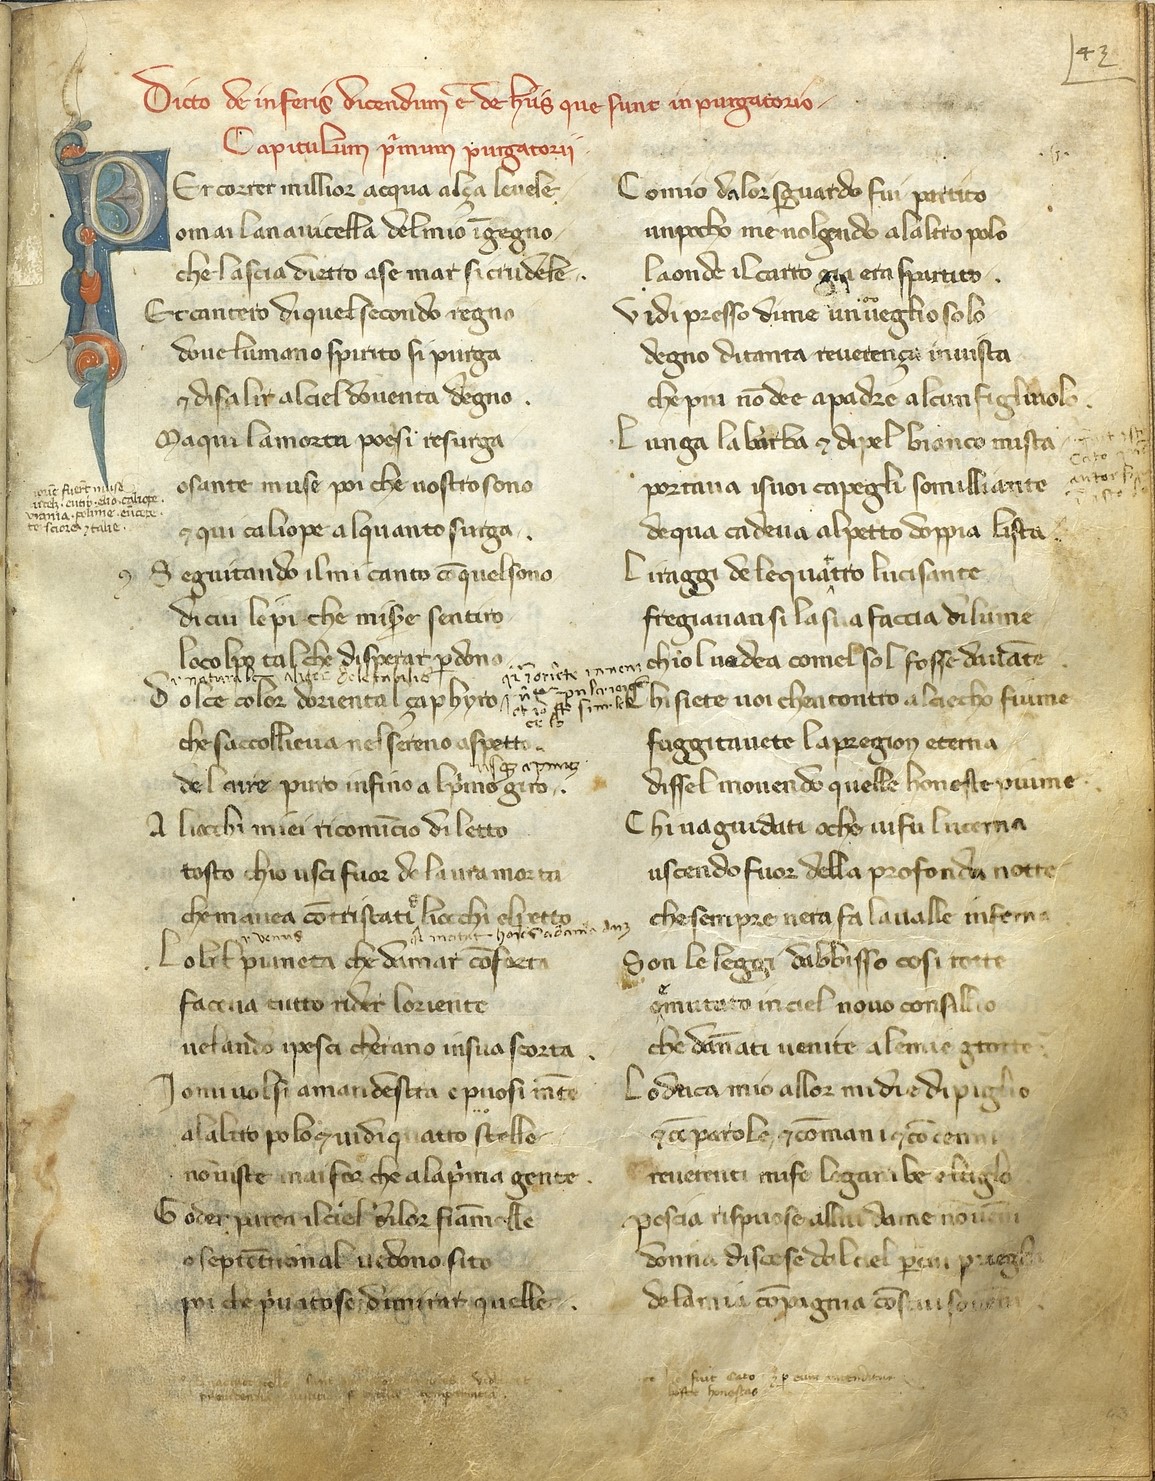 43
Dicto de inferis dicendum ē de hiis que sunt in purgatorio
Capitulum p̄mum purgatorii
PEr correr millior acqua alça le uele
omai la nauicella del mio īgegno
che lascia dietro a se mar si crudele
Et cantero di quel secondo regno
doue lumano spirito si purga
⁊ di salir al ciel douenta degno
Ma qui la morta poesi resurga
o sante muse poi che uostro sono
⁊ qui caliope alquanto surga
Seguitando il mi canto cō quel sono
di cui le pi che misere sentiro
lo colpo tal che disperar perdono
Dolce color doriental çaphyro
che saccollieua nel sereno aspetto
de laire puro infino al p̄mo giro
A liocchi miei ricomīcio diletto
tosto chio usci fuor de laura morta
che mauea cōtristati liocchi el petto
Lo bel pianeta che damar cōforta
faceua tutto rider loriente
uelando i pesci cherano in sua scorta
Io mi uolsi a man destra e puosi mēte
a laltro polo ⁊ uidi quatto stelle
nō uiste mai for che a la p̄ma gente
Goder parea il ciel di lor fiāmelle
o septētrional uedouo sito
poi che p̄uato se di mirar quelle
Comio da lor sguardo fui partito
un pocho me uolgendo a laltro polo
la onde il carro gia era sparito
Vidi presso di me un ueglio solo
degno di tanta reuerença in uista
che piu nō dee a padre alcun figliuolo
Lunga la barba ⁊ di pel bianco mista
portaua i suoi capegli somilliante
de qua cadeua al petto doppia lista
Li raggi de le quatro luci sante
fregiauan si la sua faccia di lume
chiol uedea comel sol fosse dauāte
Chi siete uoi chen contro al ciecho fiume
fuggit auete la pregion eterna
dissel mouendo quelle honeste piume
Chi ua guidati o che ui fu lucerna
uscendo fuor della profonda notte
che sempre nera fa la ualle inferna
Son le leggi dabbisso cosi rotte
o e mutato in ciel nouo consillio
che dānati uenite a le mie grotte
Lo duca mio allor mi die di piglio
⁊ cō parole ⁊ cō mani ⁊ cō cenni
reuerenti mi fe le gambe el ciglo
poscia rispuose allui da me nō uēni
donna discese del ciel per cui prieghi
de la mia cōpagnia costui souenni